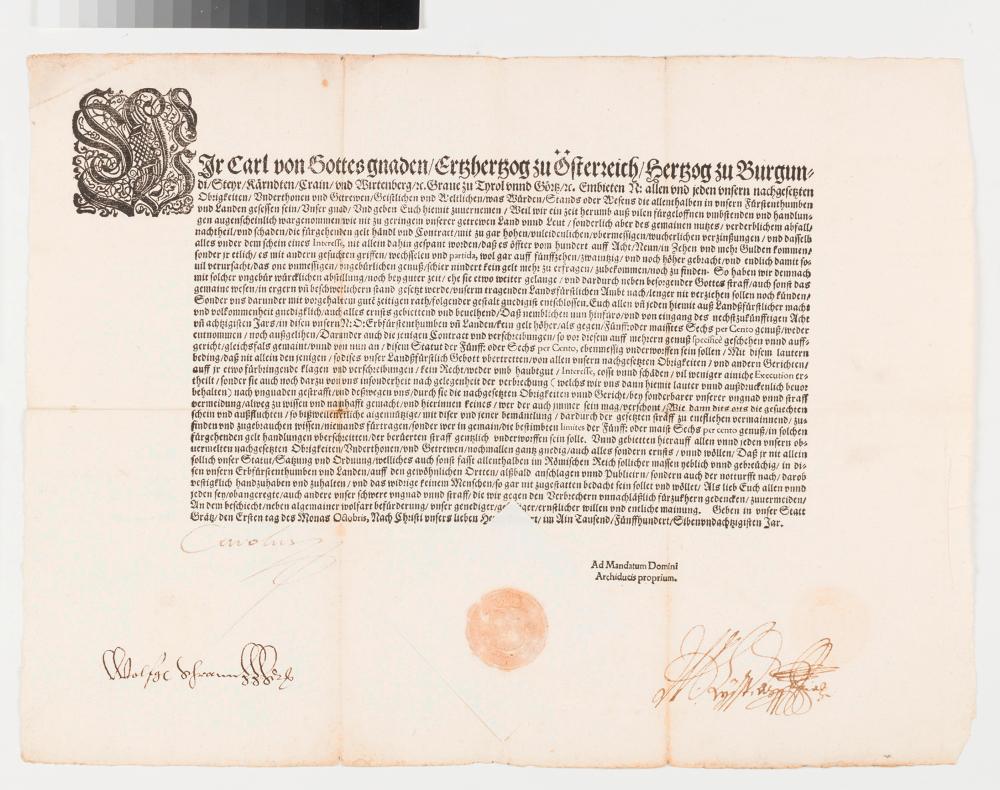 WJr Carl von Gottes gnaden/Ertzhertzog zu Österreich/Hertzog zu Burgun-
di/Steyr/Kärndten/Crain/vnd Wirtenberg/ꝛc.Graue zu Tyrol vnnd Görtz/ꝛc. Embieten N: allen vnd jeden vnsern nachgesetzten
Obrigkeiten/Vnderthonen vnd Getrewen/Geistlichen vnd Weltlichen/was Würden/Stands oder Wesens die allenthalben in vnsern Fürstenthumben
vnd Landen gesessen sein/Vnser gnad/Vnd geben Euch hiemit zuuernemen/Weil wir ein zeit herumb auß vilen fürgeloffnen vmbstenden vnd handlun-
gen augenscheinlich wargenommen/wie nit zu geringem vnserer getrewen Land vnnd Leut/sonderlich aber des gemainen nutzes/verderblichem abfall/
nachtheil/vnd schaden/die fürgehenden gelt händl vnd Contract/mit zu gar hohen/vnleidenlichen/vbermessigen/wucherlichen verzinßungen/vnd dasselb
alles vnder dem schein eines Interesse, nit allein dahin gespant worden/daß es öffter vom hundert auff Acht/Neun/in Zehen vnd mehr Gulden kommen/
sonder jr etlich/es mit andern gesuchten griffen/wechsselen vnd partida, wol gar auff fünffzehen/zwaintzig/vnd noch höher gebracht/vnd endlich damit so-
uil verursacht/das one vnmessigen/vngebürlichen genuß/schier nindert kein gelt mehr zu erfragen/zubekommen/noch zu finden. So haben wir demnach
mit solcher vngebür würcklichen abstillung/noch bey guter zeit/ehe sie etwo weiter gelange/vnd dardurch neben besorgender Gottes straff/auch sonst das
gemaine wesen/in ergern vñ beschwerlichern stand gesetzt werde/vnserm tragenden Landsfürstlichen Ambt nach/lenger nit verziehen sollen noch künden/
Sonder vns darunder mit vorgehabtem gutẽ zeitigen rath/folgender gestalt gnedigist entschlossen.Euch allen vñ jeden hiemit auß Landßfürstlicher macht
vnd volkommenheit gnedigklich/auch alles ernsts gebietend vnd beuelhend/Daß nemblichen nun hinfüro/vnd von eingang des nechstzukünfftigen Acht
vñ achtzigisten Jars/in disen vnsern N: O: Erbfürstenthumben vñ Landen/kein gelt höher/als gegen/Fünff:oder maistes Sechs per Cento genuß/weder
entnommen/noch außgelihen/Darunder auch die jenigen Contract vnd verschreibungen/so vor disem auff mehrern genuß specificè geschehen vnnd auff-
gericht/gleichsfals gemaint/vnnd von nun an/disem Statut der Fünff: oder Sechs per Cento, ebenmessig vnderworffen sein sollen/Mit disem lautern
beding/daß nit allein den jenigen/so dises vnser Landßfürstlich Gebott vbertretten/von allen vnsern nachgesetzten Obrigkeiten/vnd andern Gerichten/
auff jr etwo fürbringende klagen vnd verschreibungen/kein Recht/weder vmb haubtgut/Interesse, cosste vnnd schäden/vil weniger ainiche Execution er-
theilt/sonder sie auch noch darzu von vns insonderheit nach gelegenheit der verbrechung (welchs wir vns dann hiemit lauter vnnd außdruckenlich beuor
behalten) nach vngnaden gestrafft/vnd deßwegen vns/durch sie die nachgesetzten Obrigkeiten vnnd Gericht/bey sonderbarer vnserer vngnad vnnd straff
vermeidung/alweg zu wissen vnd namhafft gemacht/vnd hierinnen keines/wer der auch jmmer sein mag/verschont/Wie dann diß orts die gesuechten
schein vnd außflüchten/so bißzweinen etliche aigennützige/mit diser vnd jener bemäntlung/dardurch der gesetzten straff zu entfliehen vermainend/zu-
finden vnd zugebrauchen wissen/niemands fürtragen/sonder wer in gemain/die bestimbten limites der Fünff: oder maist Sechs per cento genuß/in solchen
fürgehenden gelt handlungen vberschreitten/der berüerten straff gentzlich vnderworffen sein solle. Vnnd gebietten hierauff allen vnnd jeden vnsern ob-
uermelten nachgesetzten Obrigkeiten/Vnderthonen/vnd Getrewen/nochmallen gantz gnedig/auch alles sondern ernsts/vnnd wöllen/Daß jr nit allein
sollich vnser Statut/Satzung vnd Ordnung/welliches auch sonst fasst allenthalben im Römischen Reich sollicher massen yeblich vnnd gebreüchig/in di-
sen vnsern Erbfürstenthumben vnd Landen/auff den gewöhnlichen Ortten/alßbald anschlagen vnnd Publiciern/sondern auch der notturfft nach/darob
vestigklich handzuhaben vnd zuhalten/vnd das widrige keinem Menschen/so gar nit zugestatten bedacht sein sollet vnd wöllet/Als lieb Euch allen vnnd
jeden sey/obangeregte/auch andere vnser schwere vngnad vnnd straff/die wir gegen den Verbrechern vnnachläßlich fürzukhern gedencken/zuuermeiden/
An dem beschicht/neben algemainer wolfart befürderung/vnser genediger/ernstlicher willen vnd entliche mainung. Geben in vnser Statt
Grätz/den Ersten tag des Monas Octobris, Nach Christi vnsers lieben im Ain Tausend/Fünffhundert/Sibenvndachtzigisten Jar.
Carolus
Ad Mandatum Domini
Archiducis proprium.
Wolfgc Schranz